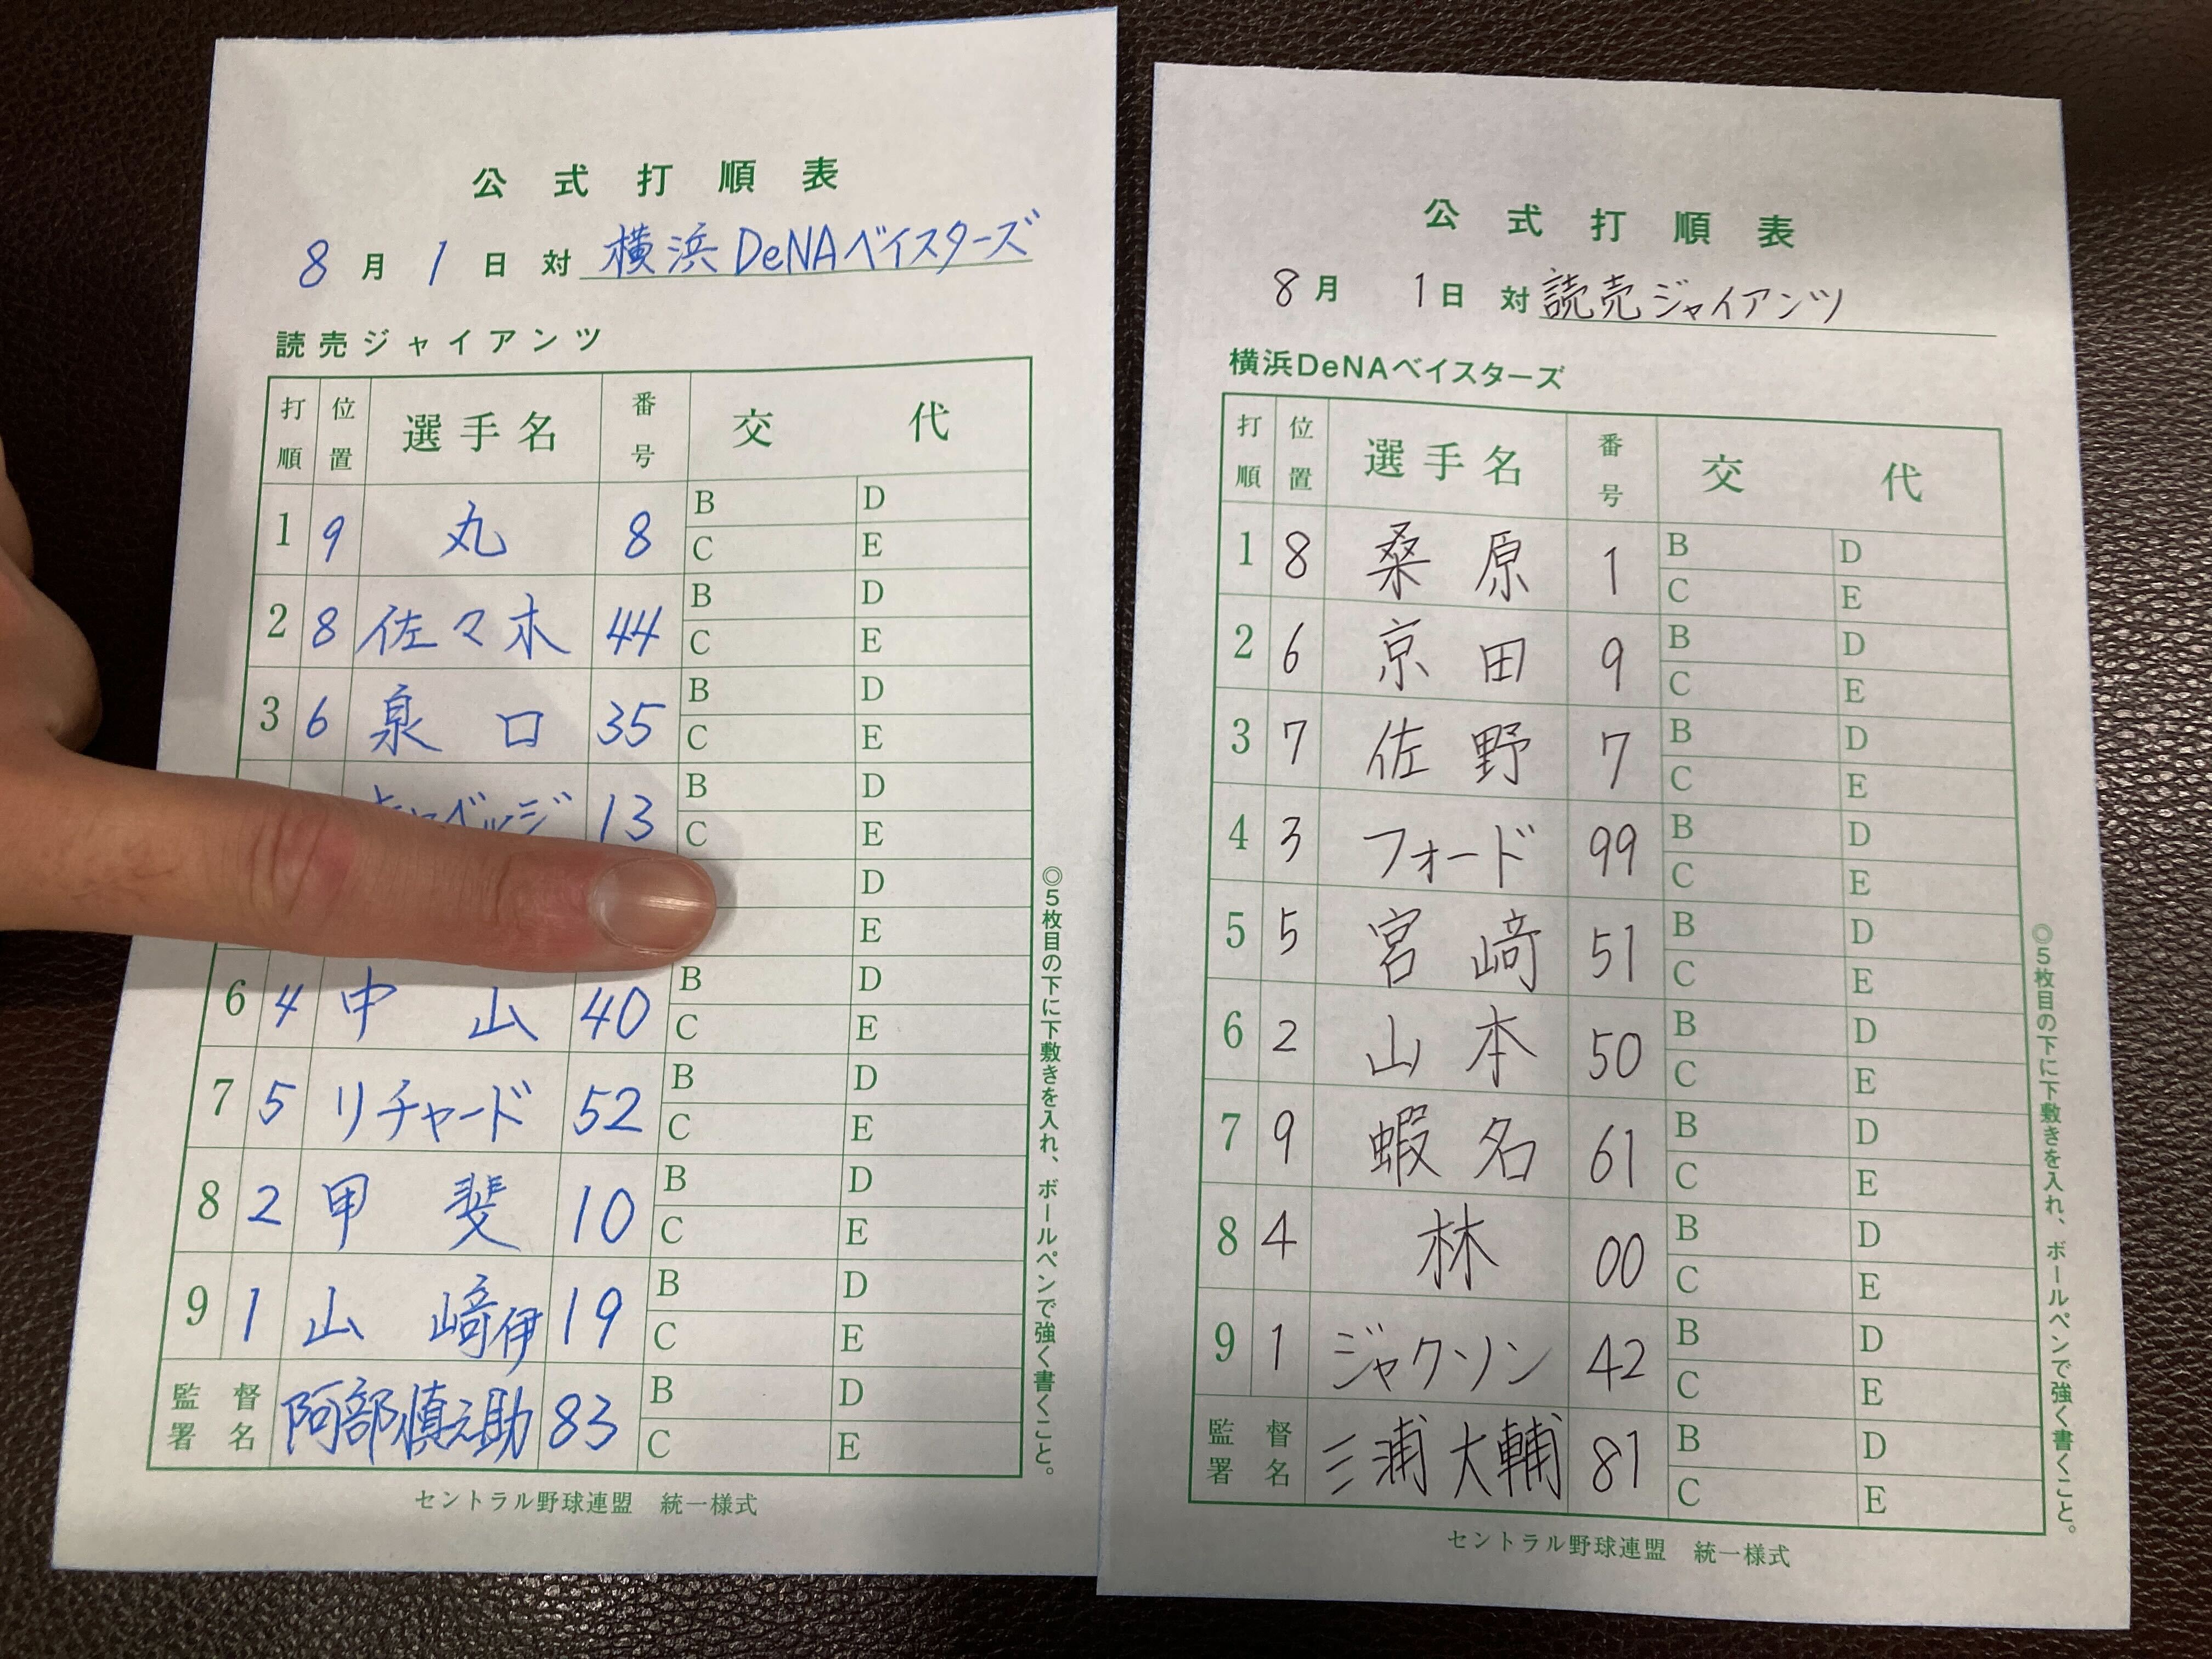 公式打順表
8月1日対 横浜DeNAベイスターズ
読売ジャイアンツ
打順 位置 選手名 番号 交代
1 9 丸 8 B D
C E
2 8 佐々木 44 B D
C E
3 6 泉口 35 B D
C E
キャベッジ 13 B D
C E
D
E
6 4 中山 40 B D
C E
7 5 リチャード 52 B D
C E
8 2 甲斐 10 B D
C E
9 1 山﨑伊 19 B D
C E
監督署名 阿部慎之助 83 B D
C E
◎5枚目の下に下敷きを入れ、ボールペンで強く書くこと。
セントラル野球連盟 統一様式
公式打順表
8月1日対 読売ジャイアンツ
横浜DeNAベイスターズ
打順 位置 選手名 番号 交代
1 8 桑原 1 B D
C E
2 6 京田 9 B D
C E
3 7 佐野 7 B D
C E
4 3 フォード 99 B D
C E
5 5 宮﨑 51 B D
C E
6 2 山本 50 B D
C E
7 9 蝦名 61 B D
C E
8 4 林 00 B D
C E
9 1 ジャクソン 42 B D
C E
監督署名 三浦大輔 81 B D
C E
◎5枚目の下に下敷きを入れ、ボールペンで強く書くこと。
セントラル野球連盟 統一様式